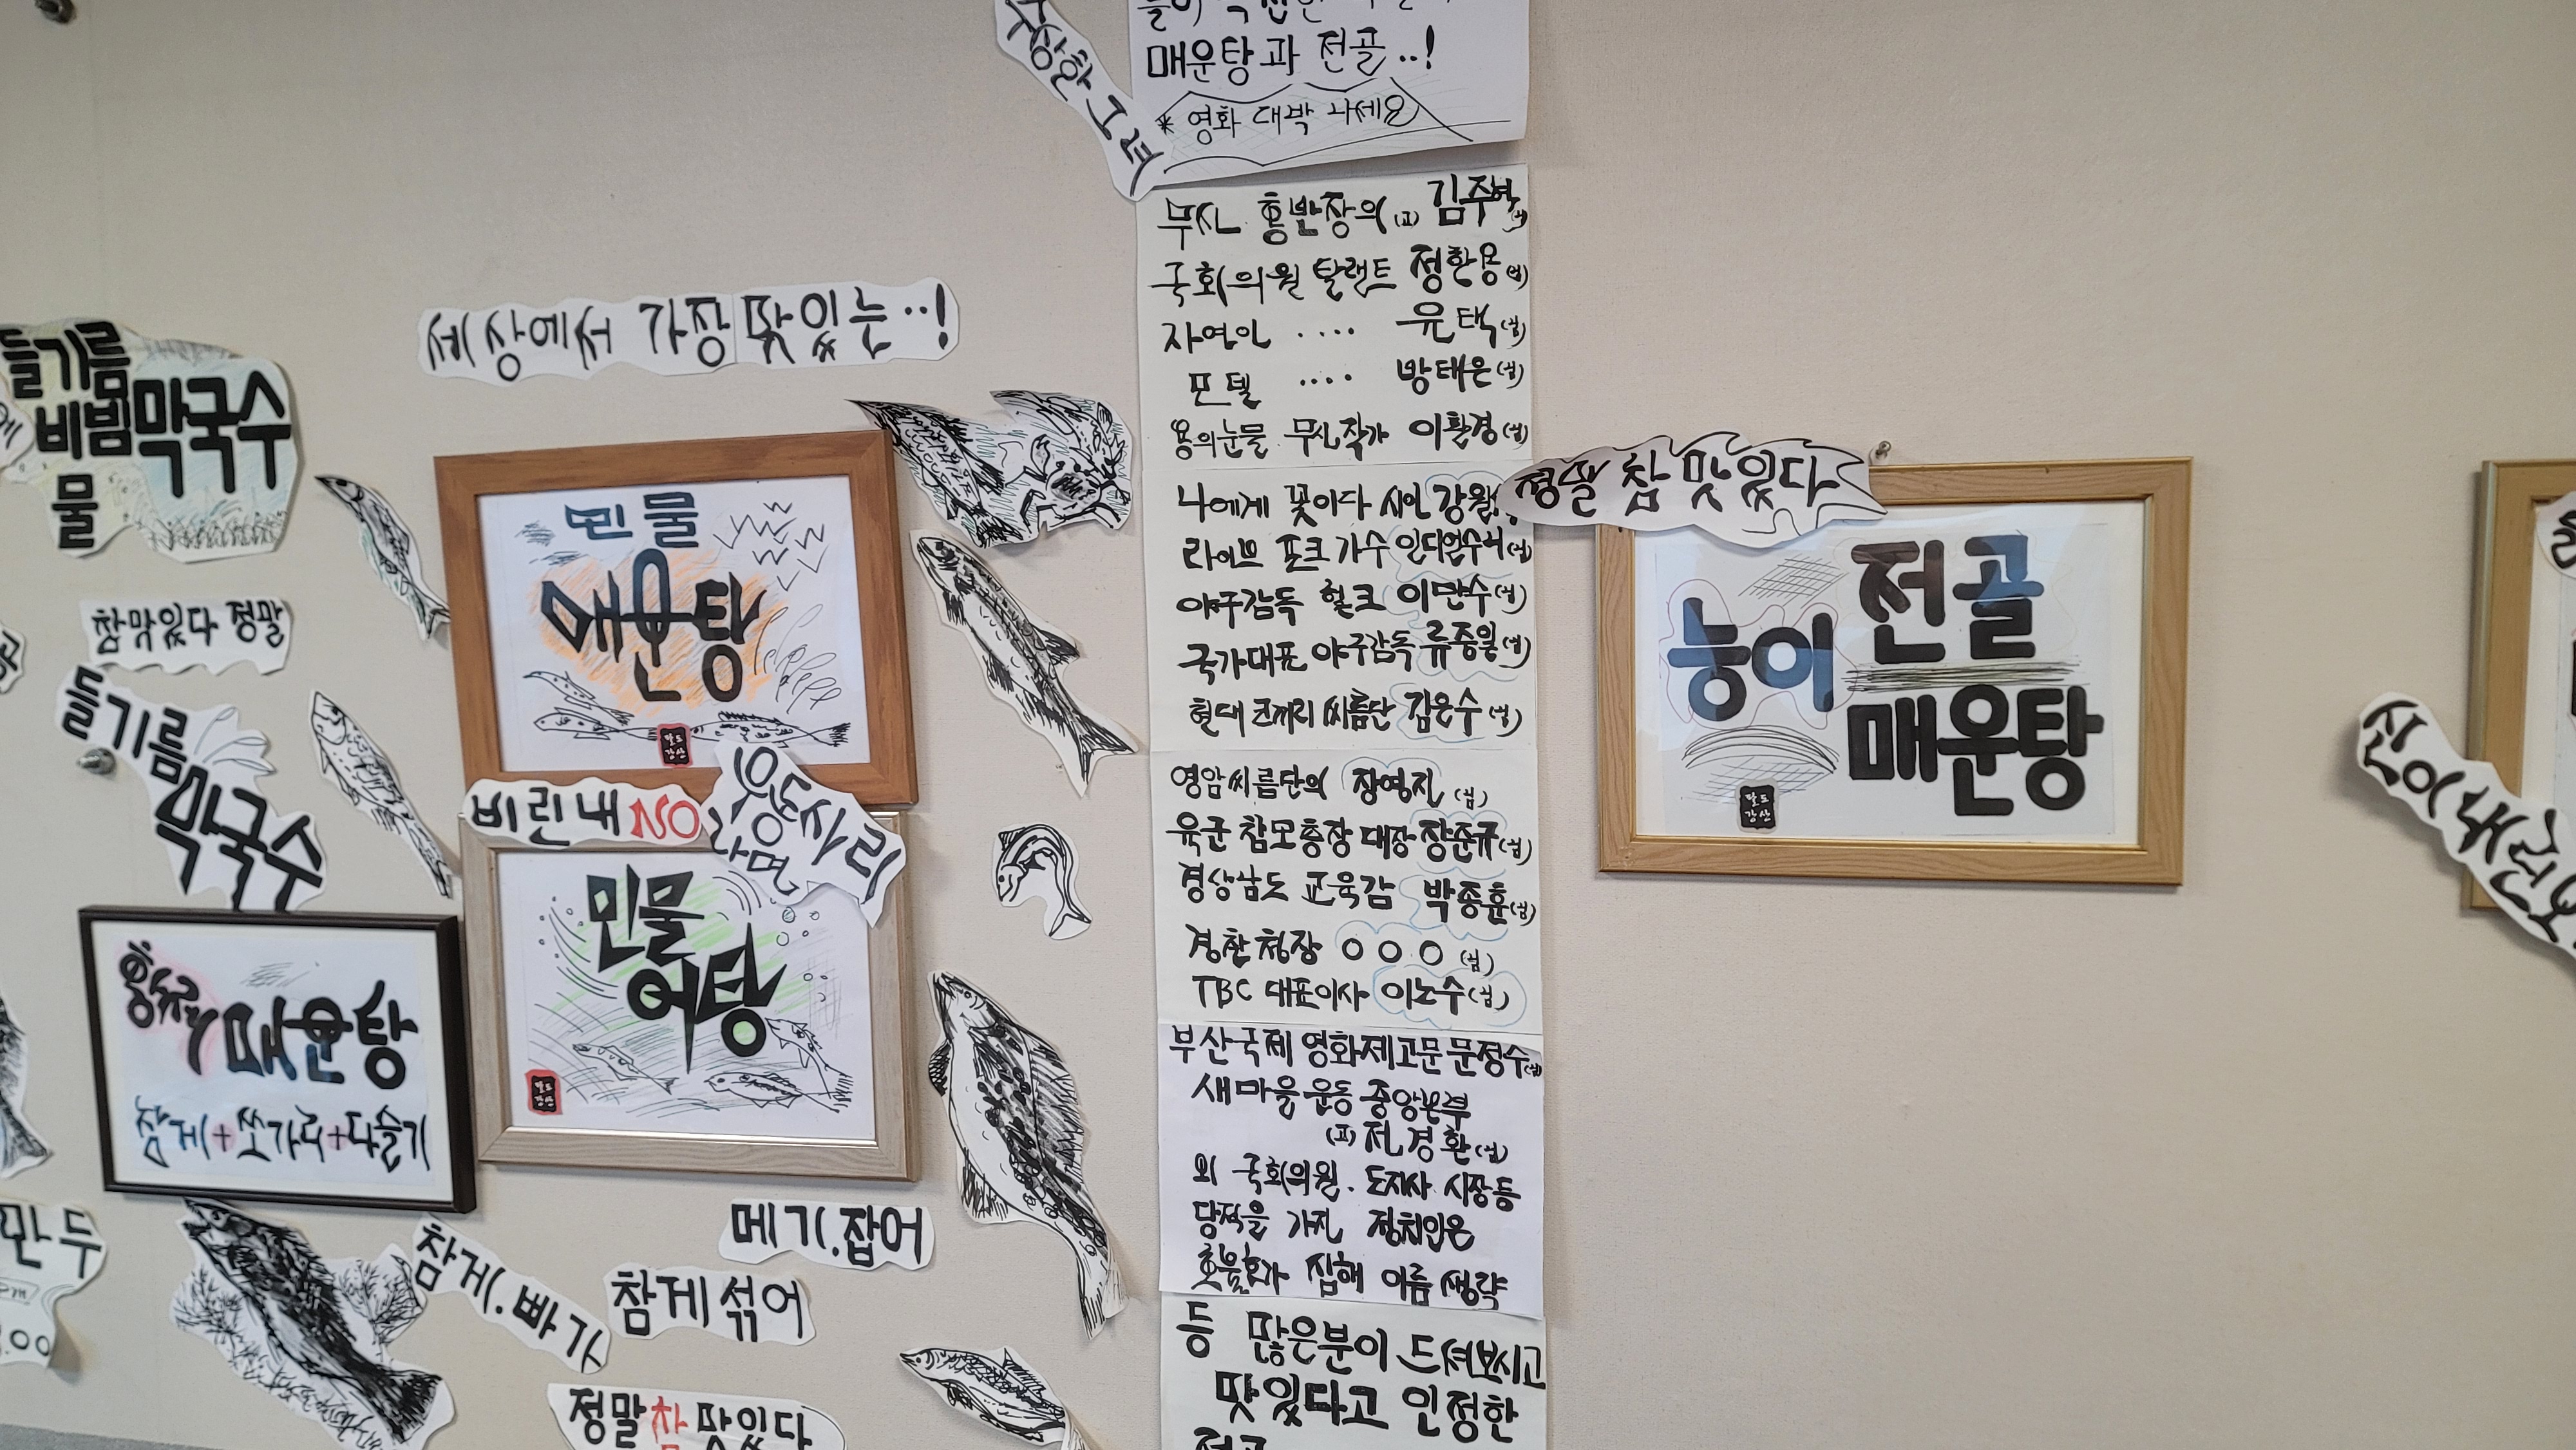 들기름
비빔 막국수
물
참맛있다 정말
들기름
막국수
매운탕
참게+쏘가리+다슬기
만두
세상에서 가장 맛있는..!
민물
매운탕
비린내 NO
우동사리
라면
민물
어탕
메기.잡어
참게.빠가
참게섞어
정말참맛있다
수상한 그녀
매운탕과 전골..!
* 영화 대박 나세요
무신 홍반장의 (고) 김주혁(님)
국회의원 탈랜트 정한용(님)
자연인 .... 윤택(님)
모델 .... 방태은(님)
용의눈물 무신작가 이환경(님)
나에게 꽃이다 시인 강원
라이브 포크가수 인디언수니(님)
야구감독 헐크 이만수(님)
국가대표 야구감독 류중일(님)
현대코끼리 씨름단 김은수(님)
영암씨름단의 장영진(님)
육군 참모총장 대장 장준규(님)
경상남도 교육감 박종훈(님)
경찰청장 ○○○(님)
TBC 대표이사 이노수(님)
부산국제 영화제고문 문정수(님)
새마을운동 중앙본부
(고)전경환(님)
외 국회의원. 도지사 시장등
당적을 가진 정치인은
호불호가 심해 이름 생략
등 많은분이 드셔보시고
맛있다고 인정한
전골
정말 참 맛있다
능이 전골
매운탕